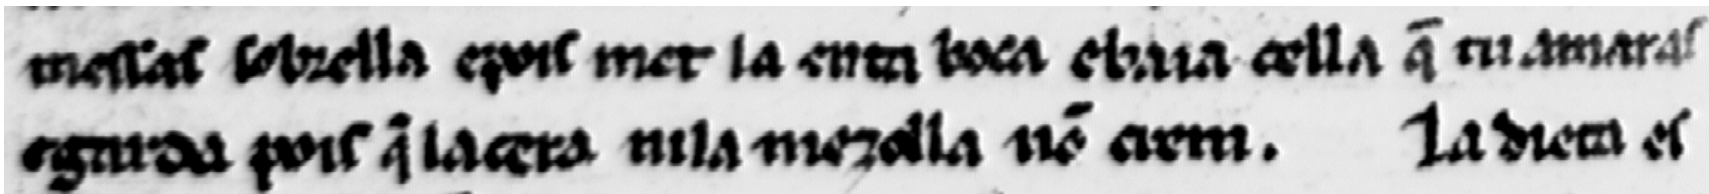 messas sobrella epois met la enta boca ebaia cella q̄ tu amaras
egarda pois q̄ la cera ni la mezolla nō crem. La dieta es